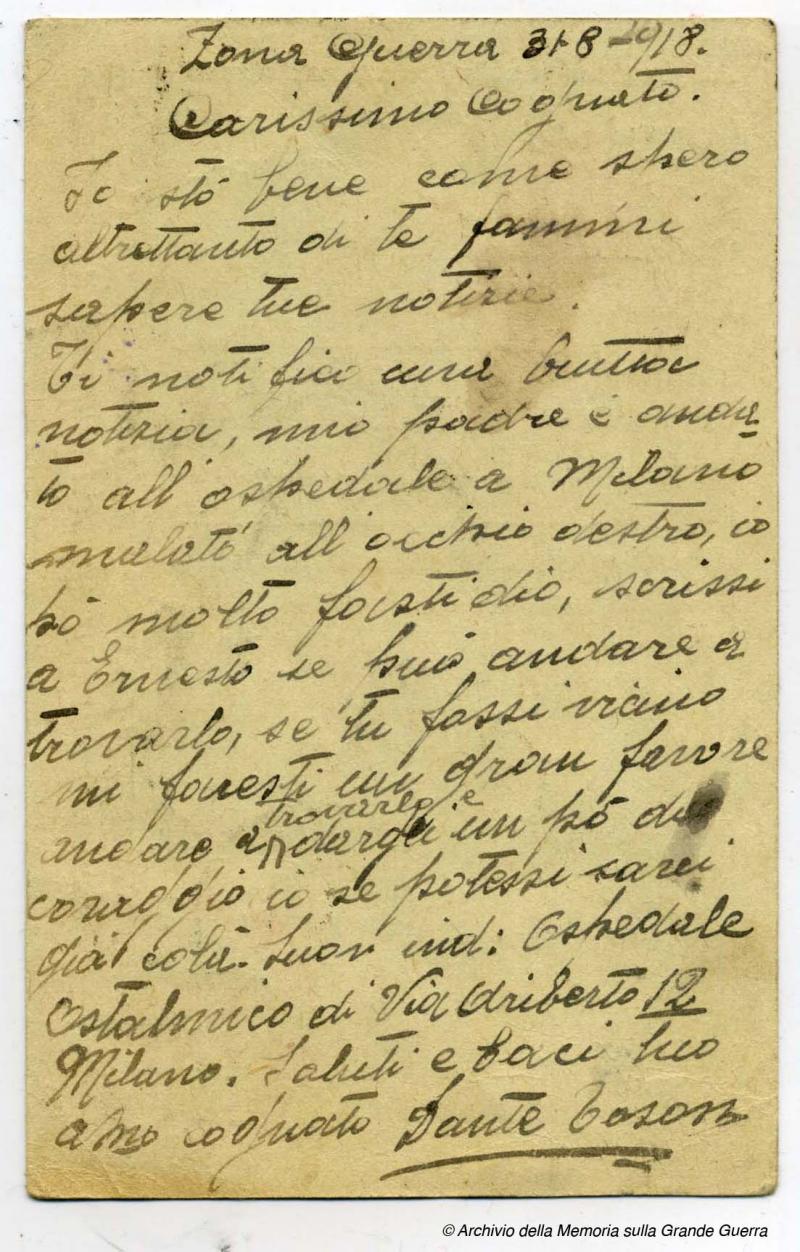 Zona Guerra 31-8-1918.
Carissimo Cognato.
Io stó bene come spero
altrettanto di te fammi
sapere tue notizie.
Ti notifico una brutta
notizia, mio padre è anda
to all'ospedale a Milano
malato all'occhio destro, io
hó molto fastidio, scrissi
a Ernesto se può andare a
trovarlo, se tu fossi vicino
mi faresti un gran favore
trovarlo e
andare a dargli un pó di
coraggio io se potessi sarei
già colà. Suo ind: Ospedale
Ostalmico di Via Ariberto 12
Milano. Saluti e baci tuo
affmo cognato Dante
© Archivio della Memoria sulla Grande Guerra